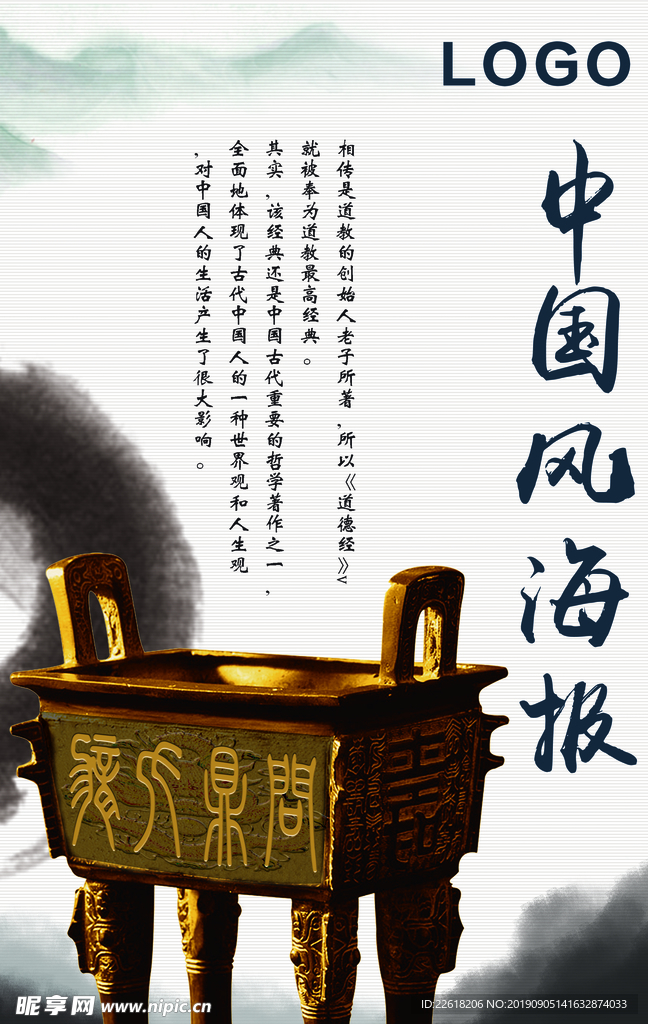 LOGO
中国风海报
相传是道教的创始人老子所著,所以《道德经》
就被奉为道教最高经典。
其实,该经典还是中国古代重要的哲学著作之一,
全面地体现了古代中国人的一种世界观和人生观
,对中国人的生活产生了很大影响。
問鼎
昵享网 www.nipic.cn
ID:22618206 NO:20190905141632874033